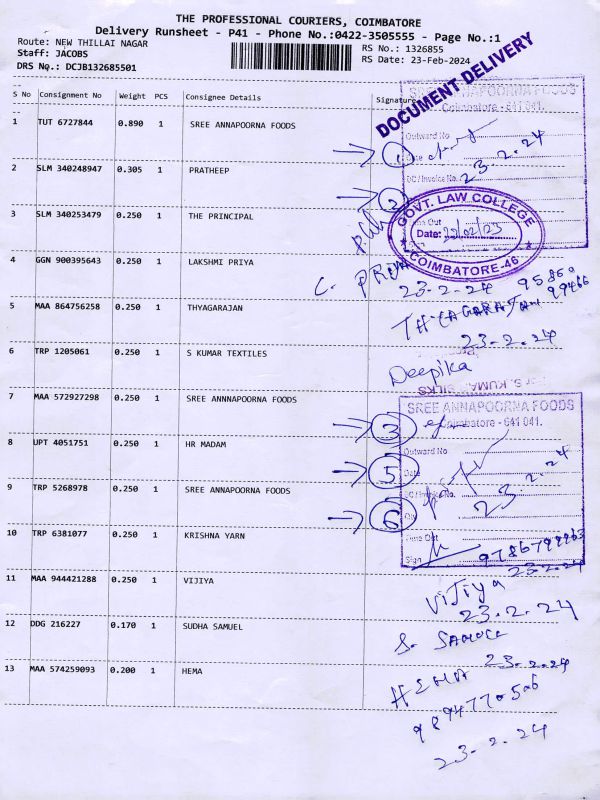 THE PROFESSIONAL COURIERS, COIMBATORE
Delivery Runsheet - P41 - Phone No.:0422-3505555 - Page No.:1
Route: NEW THILLAI NAGAR
RS No.: 1326855
Staff: JACOBS
RS Date: 23-Feb-2024
DRS No.: DCJB132685501
DOCUMENT DELIVERY
S No Consignment No Weight PCS Consignee Details Signature
1 TUT 6727844 0.890 1 SREE ANNAPOORNA FOODS
2 SLM 340248947 0.305 1 PRATHEEP
3 SLM 340253479 0.250 1 THE PRINCIPAL
4 GGN 900395643 0.250 1 LAKSHMI PRIYA
5 MAA 864756258 0.250 1 THYAGARAJAN
6 TRP 1205061 0.250 1 S KUMAR TEXTILES
7 MAA 572927298 0.250 1 SREE ANNNNAPOORNA FOODS
8 UPT 4051751 0.250 1 HR MADAM
9 TRP 5268978 0.250 1 SREE ANNAPOORNA FOODS
10 TRP 6381077 0.250 1 KRISHNA YARN
11 MAA 944421288 0.250 1 VIJIYA
12 DDG 216227 0.170 1 SUDHA SAMUEL
13 MAA 574259093 0.200 1 HEMA
SREE ANNAPOORNA FOODS
Coimbatore - 641 041.
Outward No
1
Date
23.2.24
DC / Invoice No.
2
GOVT. LAW COLLEGE
Time Out
Date:
Sign
COIMBATORE-46
C. PRIYA
23.2.24
THIAGARAJAN
23.2.24
Deepika
SREE ANNAPOORNA FOODS
3
Coimbatore - 641 041.
Outward No
5
Date
DC / Invoice No.
23.2.24
6
Qty
Time Out
Sign
23.2.24
VIJIYA
23.2.24
23.2.24
HEMA
9894770506
23.2.24